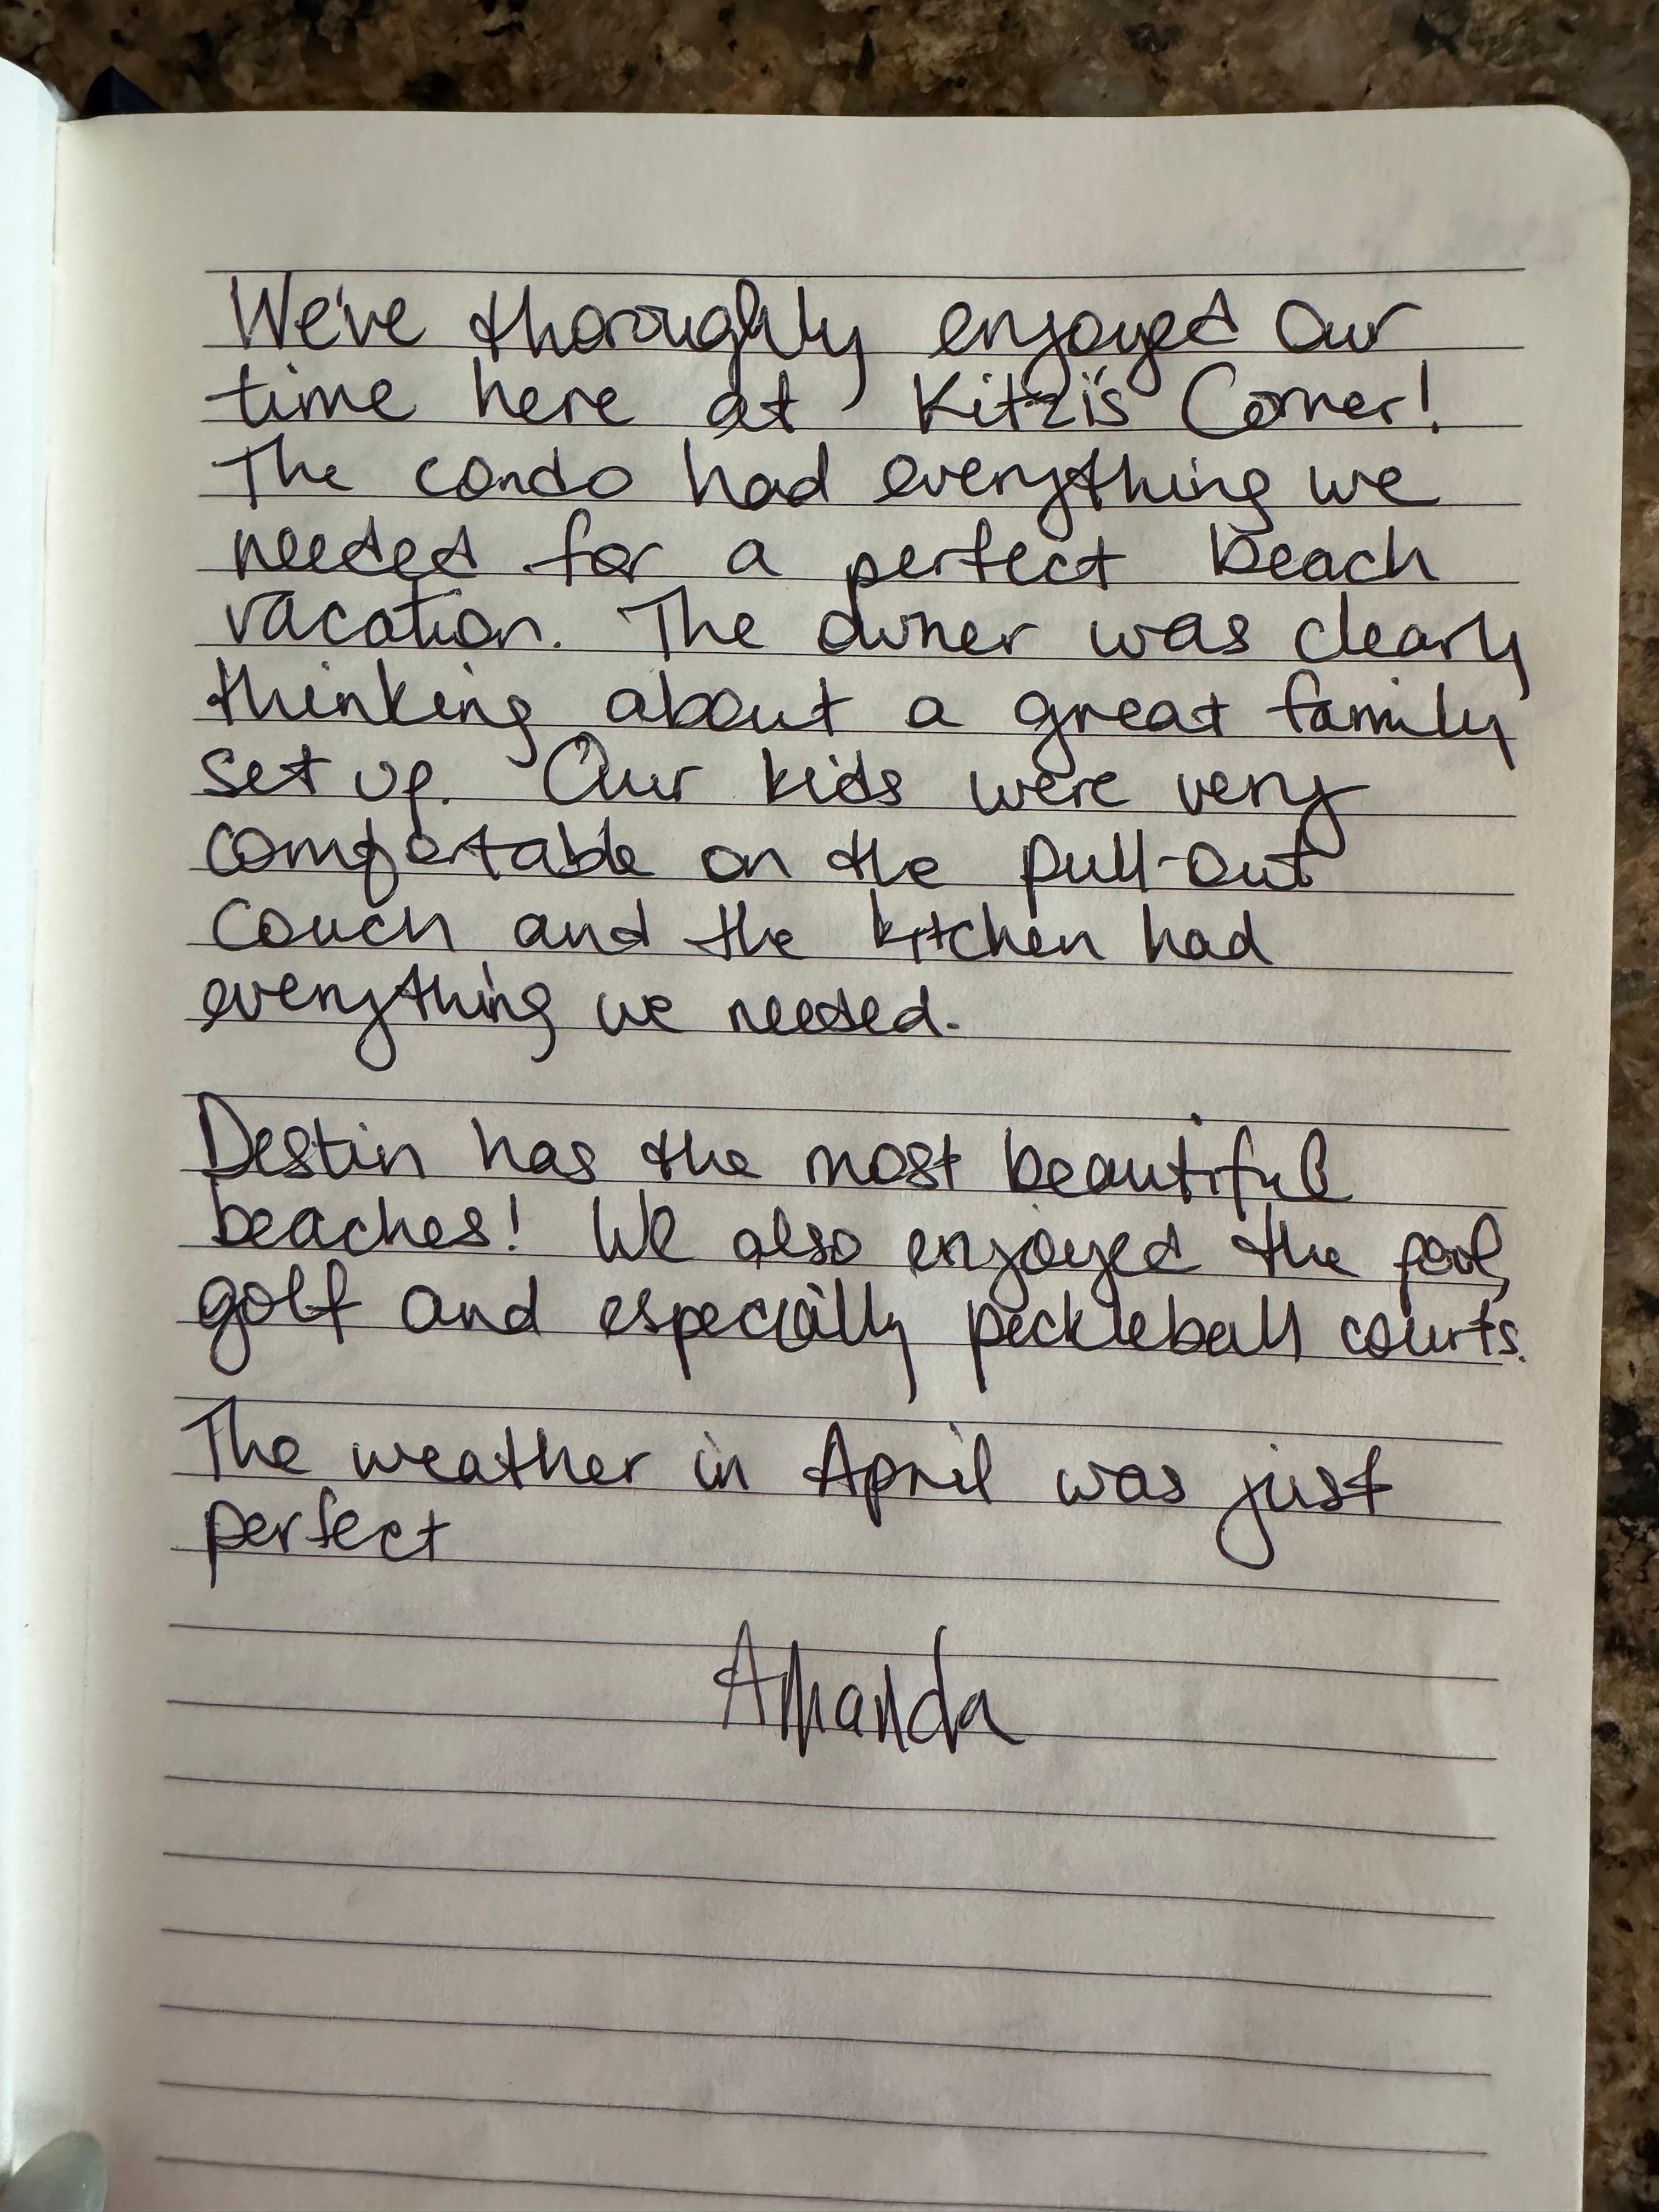 We've thoroughly enjoyed our
time here at Kitzi's Corner!
The condo had everything we
needed for a perfect beach
vacation. The owner was clearly
thinking about a great family
set up. Our kids were very
comfortable on the pull-out
couch and the kitchen had
everything we needed.
Destin has the most beautiful
beaches! We also enjoyed the pool,
golf and especially pickleball courts.
The weather in April was just
perfect
Amanda